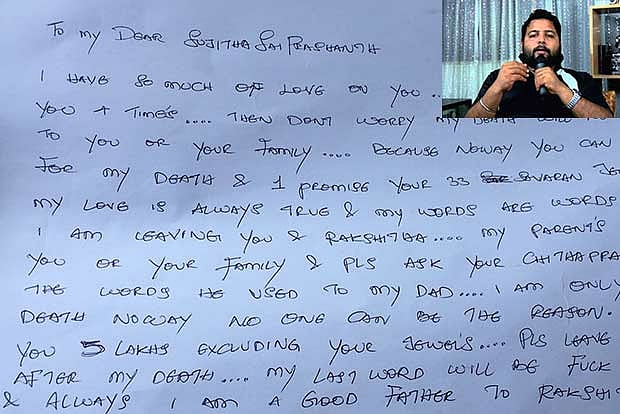 To my DEAR SUJITHA SAI PRASHANTH
I HAVE SO MUCH OF LOVE ON YOU ..
YOU 4 TIME'S .... THEN DONT WORRY MY DEATH WILL
TO YOU OR YOUR FAMILY .... BECAUSE NOWAY YOU CAN
FOR MY DEATH & I PROMISE YOUR 33 SAVARAN JEW
MY LOVE IS ALWAYS TRUE & MY WORDS ARE WORDS
I AM LEAVING YOU & RAKSHITHAA .... MY PARENT'S
YOU OR YOUR FAMILY & PLS ASK YOUR CHITHAPPA
THE WORDS HE USED TO MY DAD .... I AM ONLY
DEATH NOWAY NO ONE CAN BE THE REASON.
YOU 5 LAKHS EXCLUDING YOUR JEWEL'S .... PLS LEAVE
AFTER MY DEATH .... MY LAST WORD WILL BE FUCK
& ALWAYS I AM A GOOD FATHER TO RAKSHI